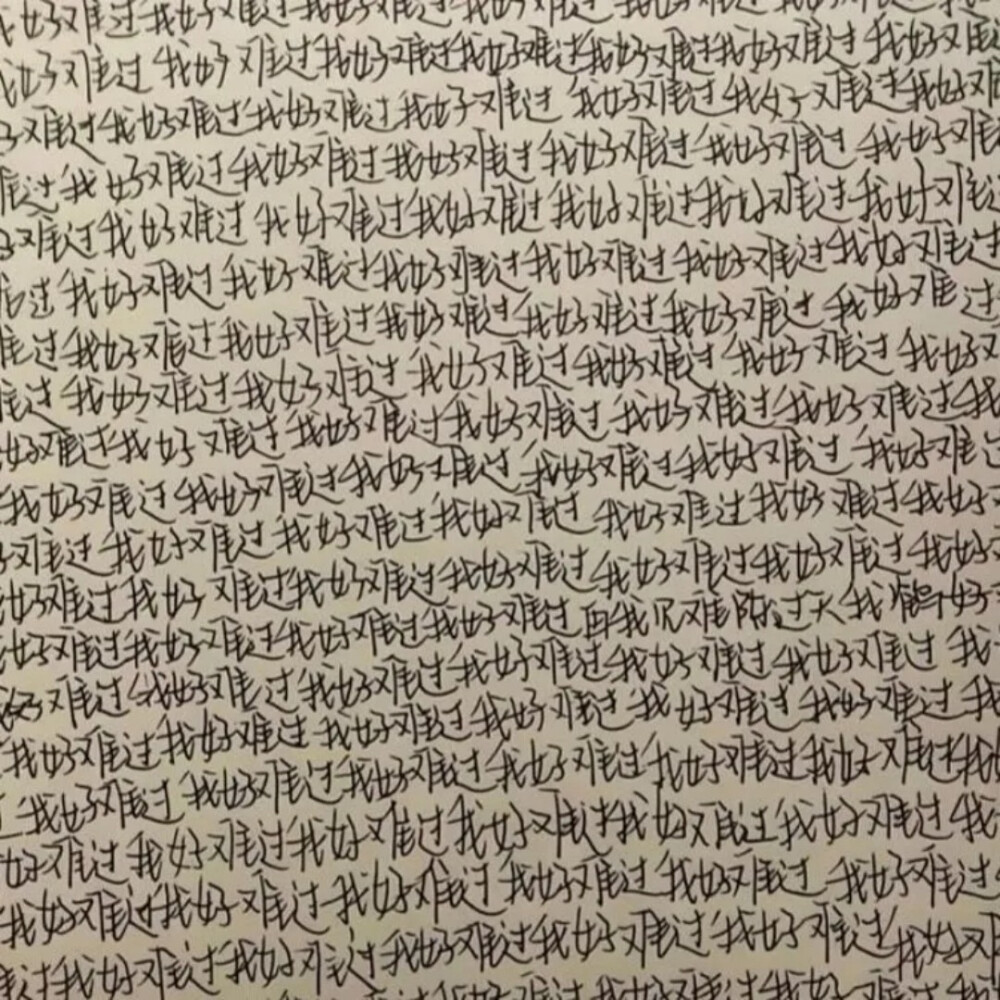 我好难过我好难过我好难过我好难过我好难过我好难过
我好难过我好难过我好难过我好难过我好难过我好难过我好难
好难过我好难过我好难过我好难过我好难过我好难过我好难
难过我好难过我好难过我好难过我好难过我好难过我好难
好难过我好难过我好难过我好难过我好难过我好难过我好难过
难过我好难过我好难过我好难过我好难过我好难过我好难过
难过我好难过我好难过我好难过我好难过我好难过我好难过
难过我好难过我好难过我好难过我好难过我好难过我好难
好难过我好难过我好难过我好难过我好难过我好难过我
我好难过我好难过我好难过我好难过我好难过我好难过
好难过我好难过我好难过我好难过我好难过我好难过我好
好难过我好难过我好难过我好难过我好难过我好难过我好
好难过我好难过我好难过我好难过 我 难 过天我 好
好难过我好难过我好难过我好难过我好难过我好难过我
我好难过我好难过我好难过我好难过我好难过我好难过我
我好难过我好难过我好难过我好难过我好难过我好难过我
我好难过我好难过我好难过我好难过我好难过我好难过我
好难过我好难过我好难过我好难过我好难过我好难过
我好难过我好难过我好难过我好难过我好难过我好难过我好难
难过我好难过我好难过我好难过我好难过我好难过